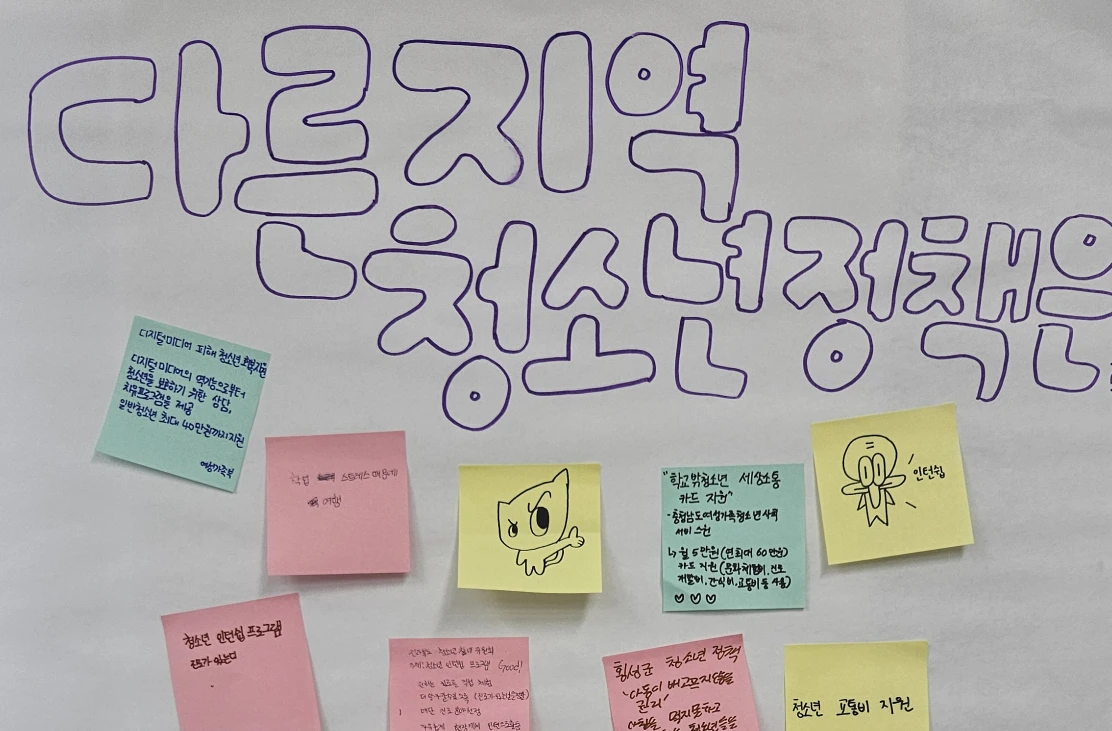 다른지역
청소년정책은
디지털미디어 피해 청소년 회복지원
디지털미디어의 역기능으로부터
청소년을 보호하기 위한 상담,
치유프로그램을 제공
일반청소년 최대 40만원까지지원
여성가족부
학업 스트레스 때문에
여행
"학교 밖청소년 세상소통
카드 지원"
-충청남도여성가족청소년사회
서비스원
↳ 월 5만원(연최대 60만원)
카드 지원(문화체험비, 진로
계발비, 간식비, 교통비 등 사용)
♡♡♡
인턴쉽
청소년 인턴쉽 프로그램
청소년 참여 위원회
청소년 인턴쉽 프로그램 Good!
원하는 진로를 직접 체험
횡성군 청소년 정책
'아동이 배고프지않을
권리'
아침을 먹지못하고
청소년 교통비 지원